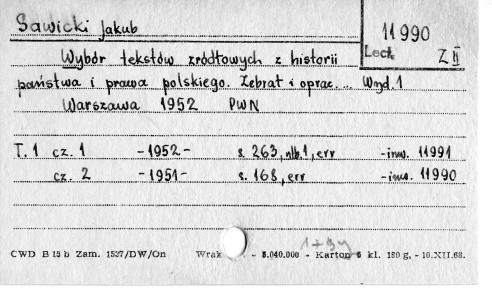 Sawicki Jakub
11990
Lect. Z II
Wybór tekstów źródłowych z historii
państwa i prawa polskiego. Zebrał i oprac. .. Wyd. 1
Warszawa 1952 PWN
T. 1 cz. 1 -1952- s. 263, nlb. 1, err -inw. 11991
cz. 2 -1951- s. 168, err -inw. 11990
1+9y
CWD B 15 b Zam. 1527/DW/On Wrak - 5.040.000 - Karton 6 kl. 180 g. - 10.XII.68.